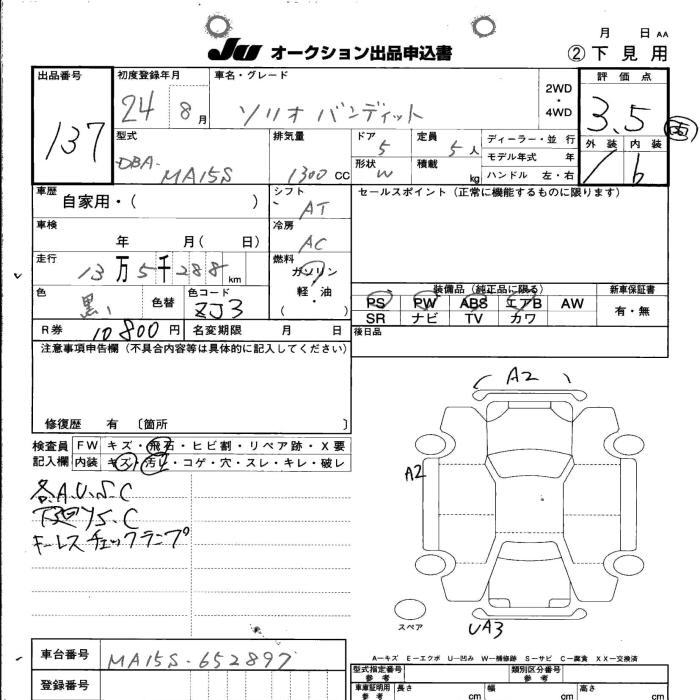 月 日 AA
JU オークション出品申込書 ②下見用
出品番号 137
初度登録年月 24 8月
車名・グレード ソリオ バンディット
2WD・4WD
評価点 3.5
外装 内装 b
型式 DBA- MA15S
排気量 1300 CC
ドア 5
形状 W
定員 5人
積載 kg
ディーラー・並行
モデル年式 年
ハンドル 左・右
車歴 自家用・( )
シフト AT
セールスポイント(正常に機能するものに限ります)
車検 年 月( 日)
冷房 AC
走行 13万5千288km
燃料 ガソリン
軽・油
( ・ )
色 黒 色替
色コード ZJ3
装備品(純正品に限る)
PS PW ABS エアB AW
SR ナビ TV カワ
新車保証書
有・無
R券 10800円 名変期限 月 日
後日品
注意事項申告欄(不具合内容等は具体的に記入してください)
修復歴 有 〔箇所 〕
検査員記入欄
FW キズ・飛石・ヒビ割・リペア跡・X要
内装 キズ・汚れ・コゲ・穴・スレ・キレ・破レ
各A.U.S.C
下廻りS.C
キーレス チェックランプ
A2
A2
UA3
スペア
A−キズ E−エクボ U−凹み W−補修跡 S−サビ C−腐食 XX−交換済
車台番号 MA15S-652897
登録番号
型式指定番号 参考
類別区分番号 参考
車庫証明用 参考 長さ cm 幅 cm 高さ cm